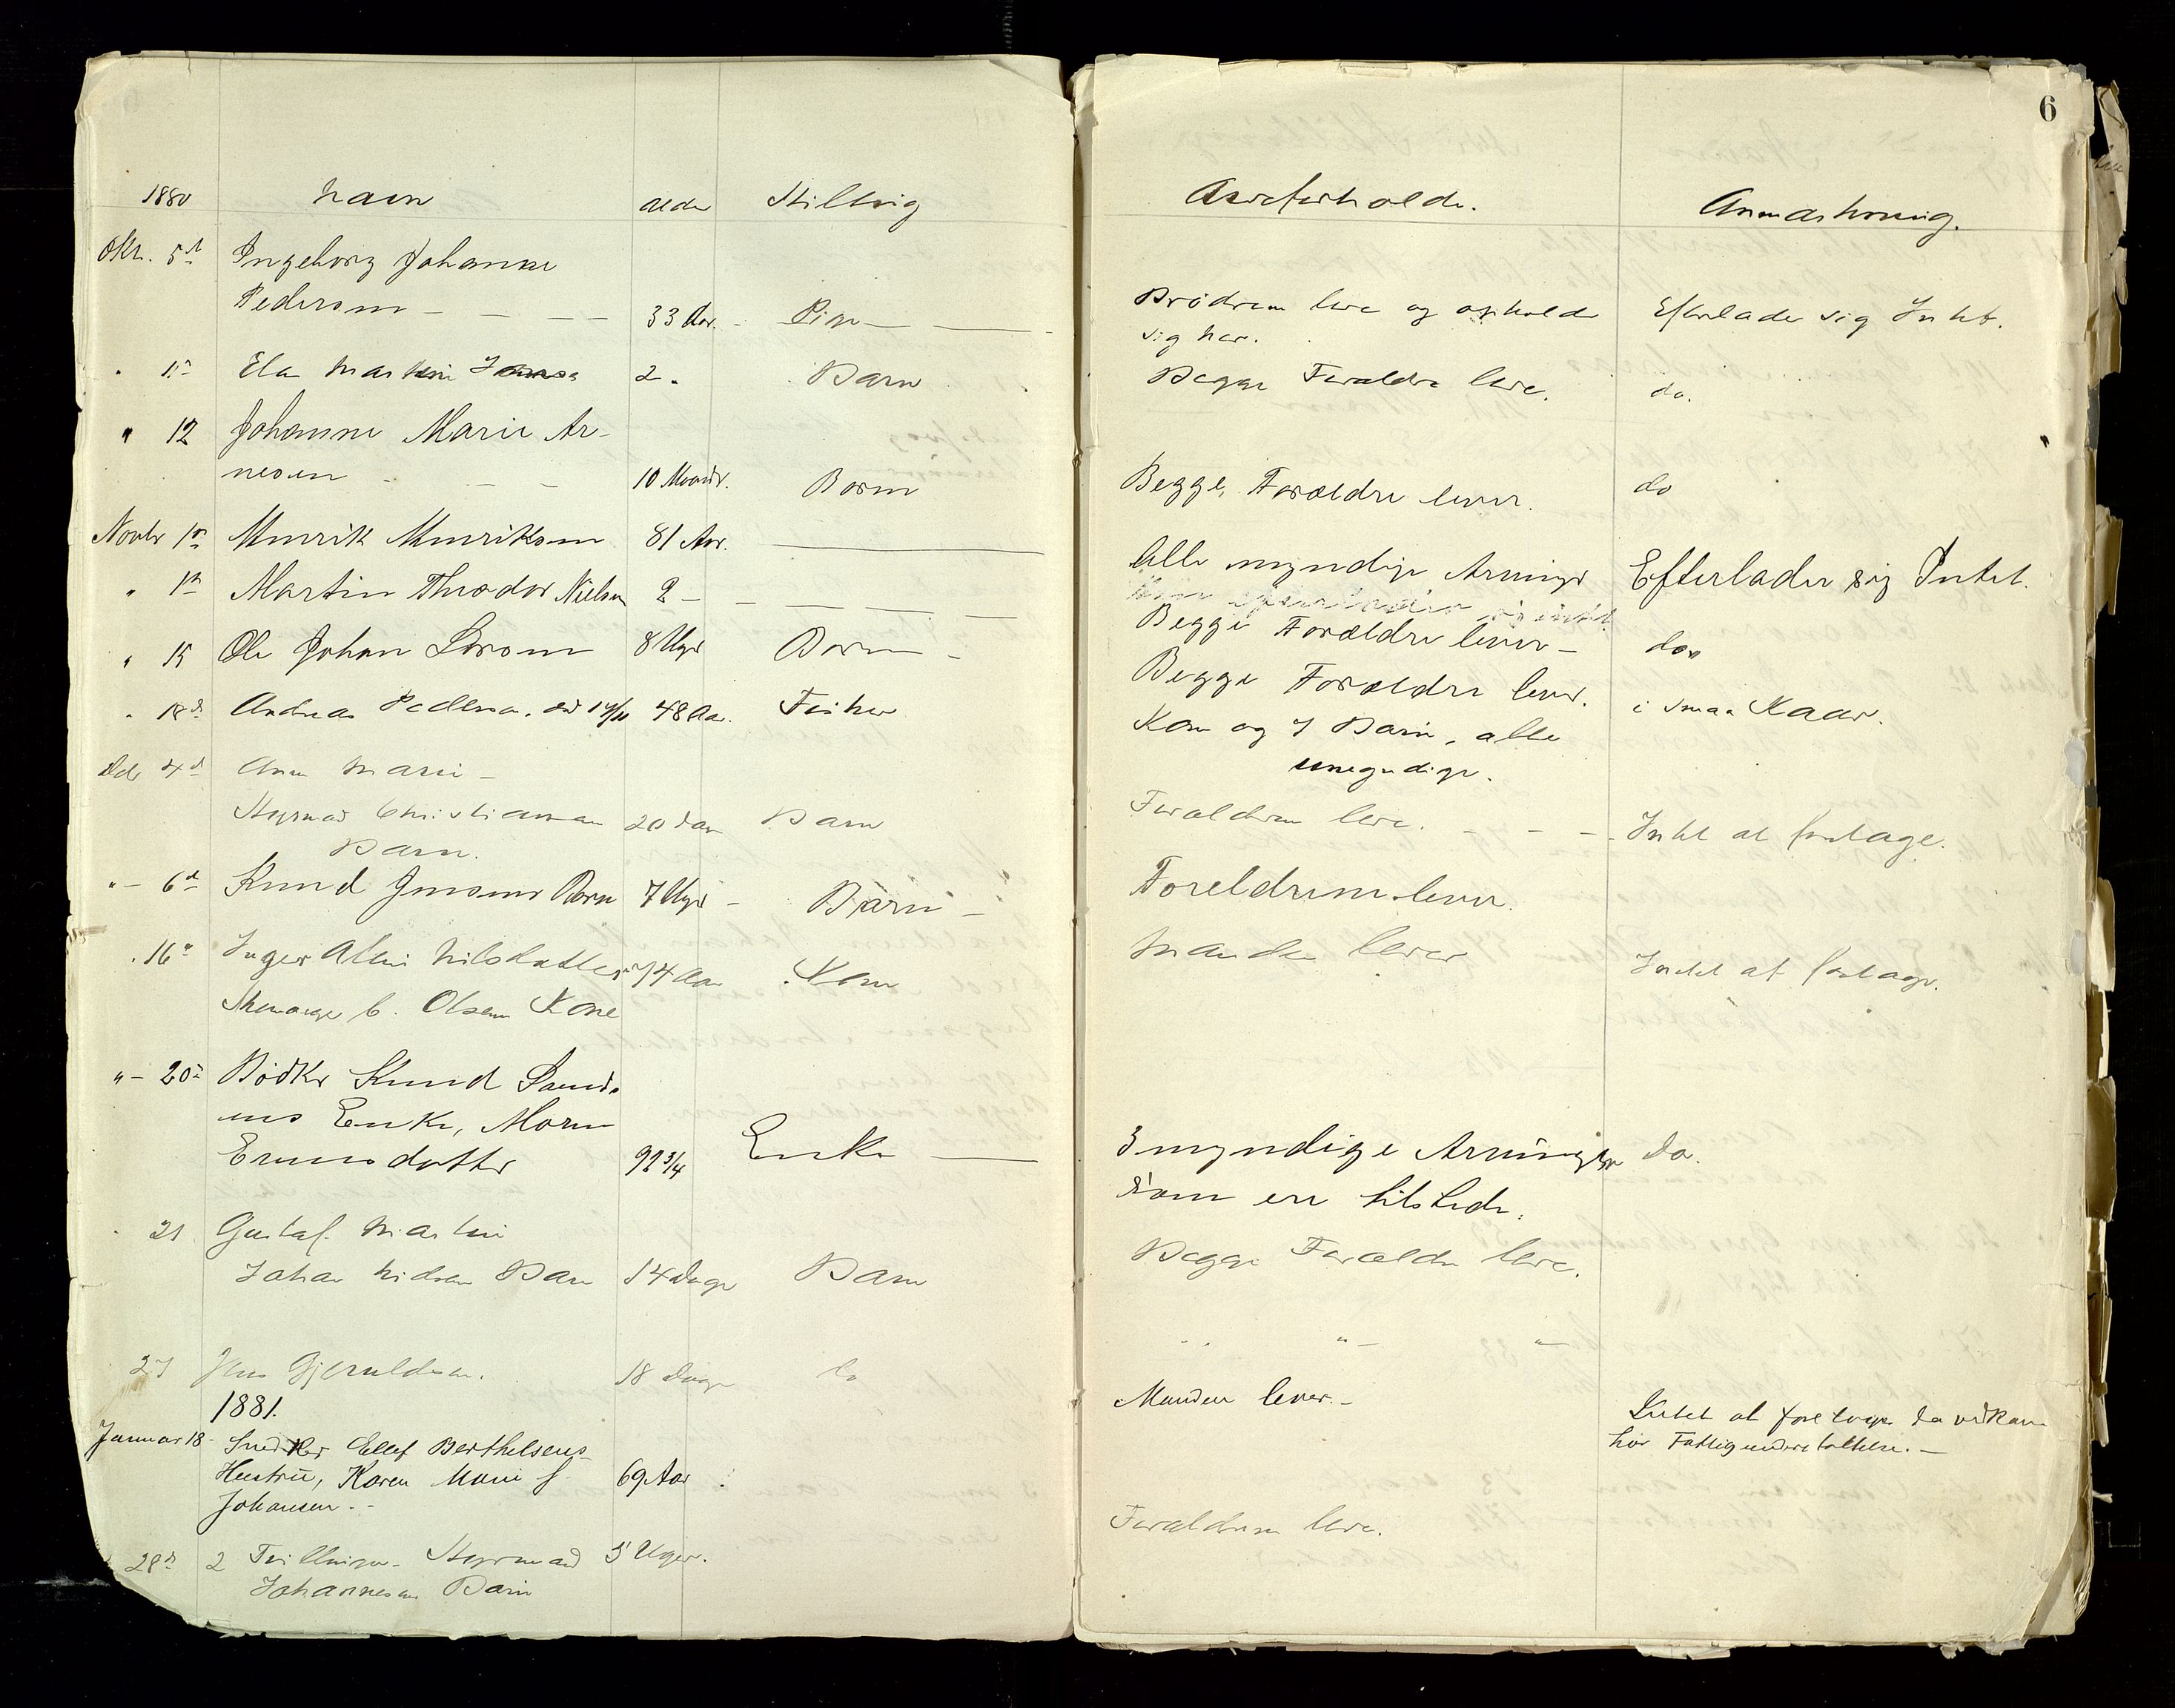 6
1880 Navn Alder Stilling
Arveforholde. Anmærkning.
Okt. 5d Ingeborg Johanne
Pedersen 33 Aar. Pige
Brødren leve og opholde Efterlader sig Intet.
sig her.
" Martin 2 " Barn
Begge Forældre leve. do.
" 12 Johanne Marie Ar-
nesen 10 Maandr. Barn
Begge Forældre lever. do
Novbr 1st 81 Aar.
Alle myndige Arvinger Efterlader sig Intet.
" Martin Theodor Nielsen 2
Begge Forældre lever - do.
" 15 Ole Johan 8 Uger Barn
Begge Forældre lever.
" 18d Andreas Pedersen. 48 Aar. Fisker
Kone og 7 Barn, alle i smaa Kaar.
umyndige.
Dcb 4d Ann Marie -
Styrmad Christiansen 20 Dar Barn
Barn.
Forældren leve. - - - Intet at foretage.
" - 6d Knud Jensens Barn 7 Uger - Barn -
Foreldrene lever.
" 16d Inger Nilsdatter 74 Aar Kone
Olsens Kone
Manden lever Intet at foretage.
" - 20d Bødker Knud
Enke, Maren
92 3/4 Enke
3 myndige Arvinger do.
som ere tilstede.
21 Gustaf Martin
Johan Barn 14 Dage Barn
Begge Forældre leve.
27 Jens Gjeruldsen. 18 Dage do
" " "
1881.
Januar 18 - Snedker Ellef Berthelsens
Hustru, Karen Marie f. 69 Aar
Johansen. -
Manden lever. - Intet at foretage da vedkom
har Fattigunderstøttelse. -
28d 2 Tvillinger Styrmand 5 Uger.
Johannesens Barn
Forældrene leve.